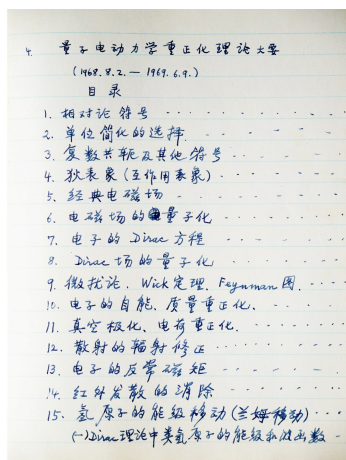 4. 量子电动力学重正化理论大要
(1968.8.2. — 1969.6.9.)
目录
1. 相对论符号
2. 单位简化的选择
3. 复数共轭及其他符号
4. 狄表象(互作用表象)
5. 经典电磁场
6. 电磁场的量子化
7. 电子的 Dirac 方程
8. Dirac 场的量子化
9. 微扰论. Wick定理. Feynman图.
10. 电子的自能、质量重正化、
11. 真空极化、电荷重正化.
12. 散射的辐射修正
13. 电子的反常磁矩
14. 红外发散的消除
15. 氢原子的能级移动(兰姆移动)
(一)Dirac理论中类氢原子的能级和波函数